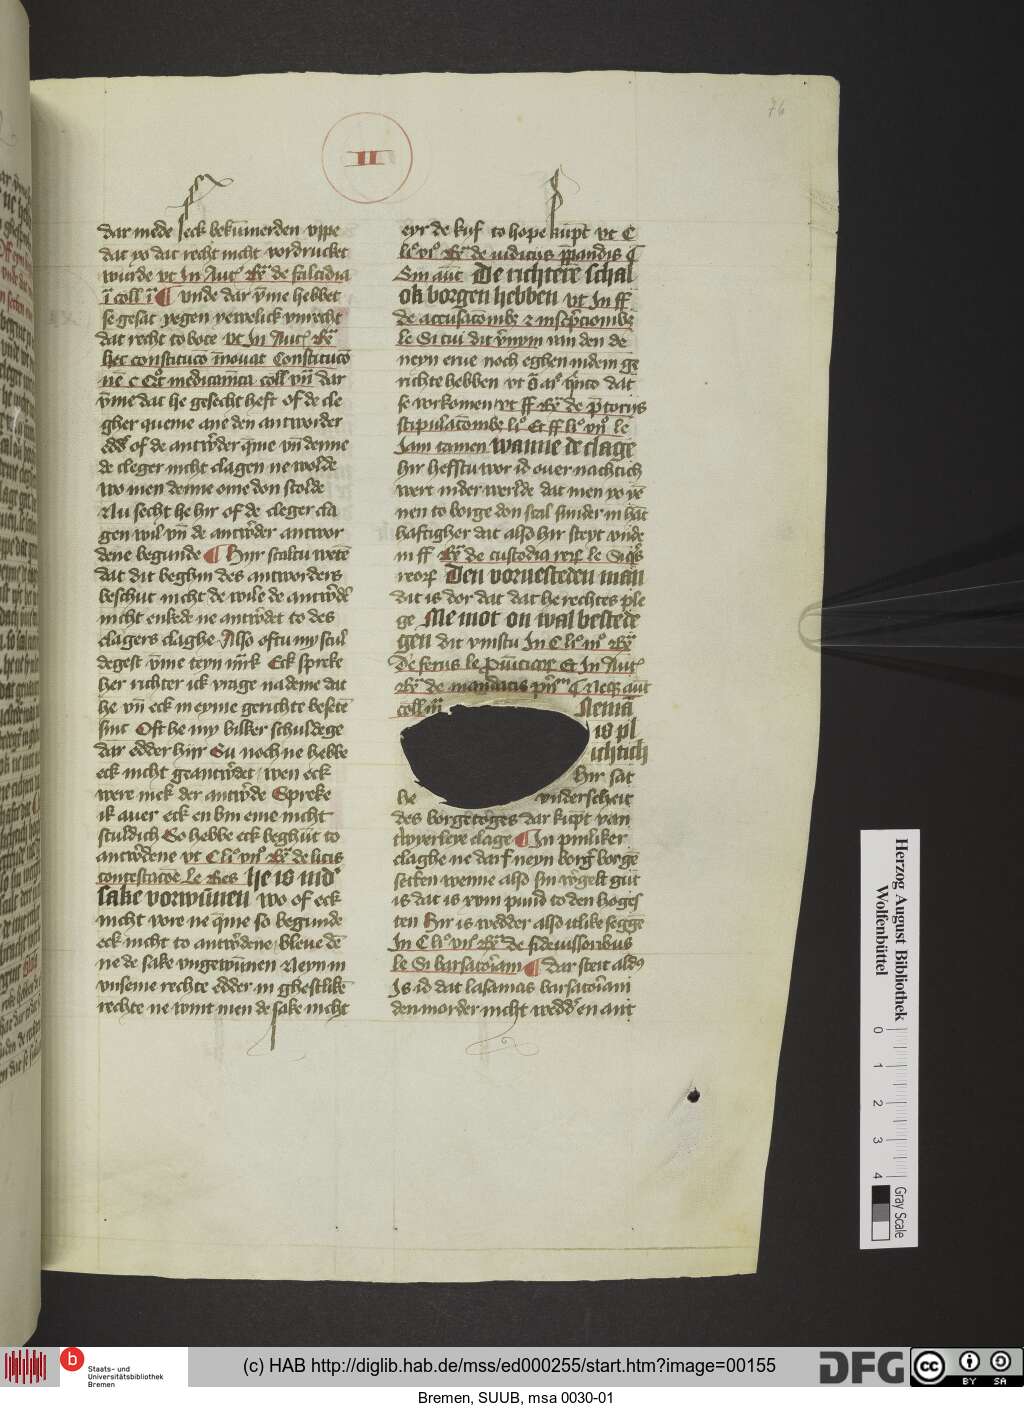 76
II
dar mede seck bekūmerden vppe
dat yo dat recht nicht vordrucket
wurde vt In Aut' Rꝫ de falcidia
ī coll ī ¶ vnde dar v̄me hebbet
se gesat yegen yewelick vnrecht
dat recht to bote vt In Aut' Rꝫ
hec constitucō īnouat Constitucō
dar
v̄me dat he gesecht heft of de cle
gher queme ane den antworder
edd' of de antw'der q̄me vn̄ denne
de cleger nicht clagen ne wolde
wo men denne ome don scolde
Nu secht he hir of de cleger cla
gen wil vn̄ de antw'der antwor
dene begunde ¶ Hijr scaltu wetē
dat dit beghin des antworders
beschut nicht de wile de antw'de'
nicht enkede ne antw'det to des
clagers claghe Also oftu my scul
degest v̄me teyn m̄rk Eck spreke
her richter ick vrage na deme dat
he vn̄ eck in eyme gerichte besetē
sint Oft he my bilker schuldege
dar edder hijr Su noch ne hebbe
eck nicht geantw'det wen eck
were nick der antw'de Spreke
ik auer eck en bin eme nicht
sculdich So hebbe eck beghūt to
antw'dene vt C li' vn' Rꝫ de litis
contestacōe le Res he is nid'
sake vorwūnen wo of eck
nicht vore ne q̄me so begunde
eck nicht to antw'dene bleue dē
ne de sake vngewūnen Neyn in
vnseme rechte edder in ghestlikē
rechte ne wint men de sake nicht
eyr de kif to hope kūpt vt C
Sin aut De richtere schal
ok borgen hebben vt In ff
de accusacōnibꝫ et inscripcionibꝫ
le Si cui dit v̄nym van den de
neyn erue noch eghen indem ge
richte hebben dat
se vorkomen vt ff Rꝫ de p̄torijs
stipulacōnibꝫ li' Et ff li' vn' le
Iam tamen wanne de clage
hir hefstu wor id ouer nachtich
were in der werlde dat men yo ye
nen to borge don scal sunder in hāt
haftigher dat also hir steyt vnde
in ff Rꝫ de custodia reoꝝ le Siq's
reoꝝ Den vornesteden man
dat is dor dat dat he rechtes ple
ge Me mot on wal bestede
gen dit vinstu In C li' Rꝫ
De feriis le Et In Aut'
Rꝫ de mandatis p̄n ¶ Neqꝫ aut
coll Neman
is pl
ichtich
hir sat
he vnderscheit
des borgetoges dar kūpt van
twyerleye clage ¶ In pinliker
claghe ne darf neyn borg' borge
setten wenne also sin w'gelt gut
is dat is xviij pund to den hoges
ten Hir is wedder also itlike segge
In C li' vn' Rꝫ de fideiussoribus
le Si barsatoriam ¶ dar steit ald'
Is id dat lasamas barsatoriam
den morder nicht wedd'en ant
Herzog August Bibliothek
Wolfenbüttel
0 1 2 3 4
Gray Scale
b Staats- und
Universitätsbibliothek
Bremen
(c) HAB http://diglib.hab.de/mss/ed000255/start.htm?image=00155
DFG
cc BY SA
Bremen, SUUB, msa 0030-01